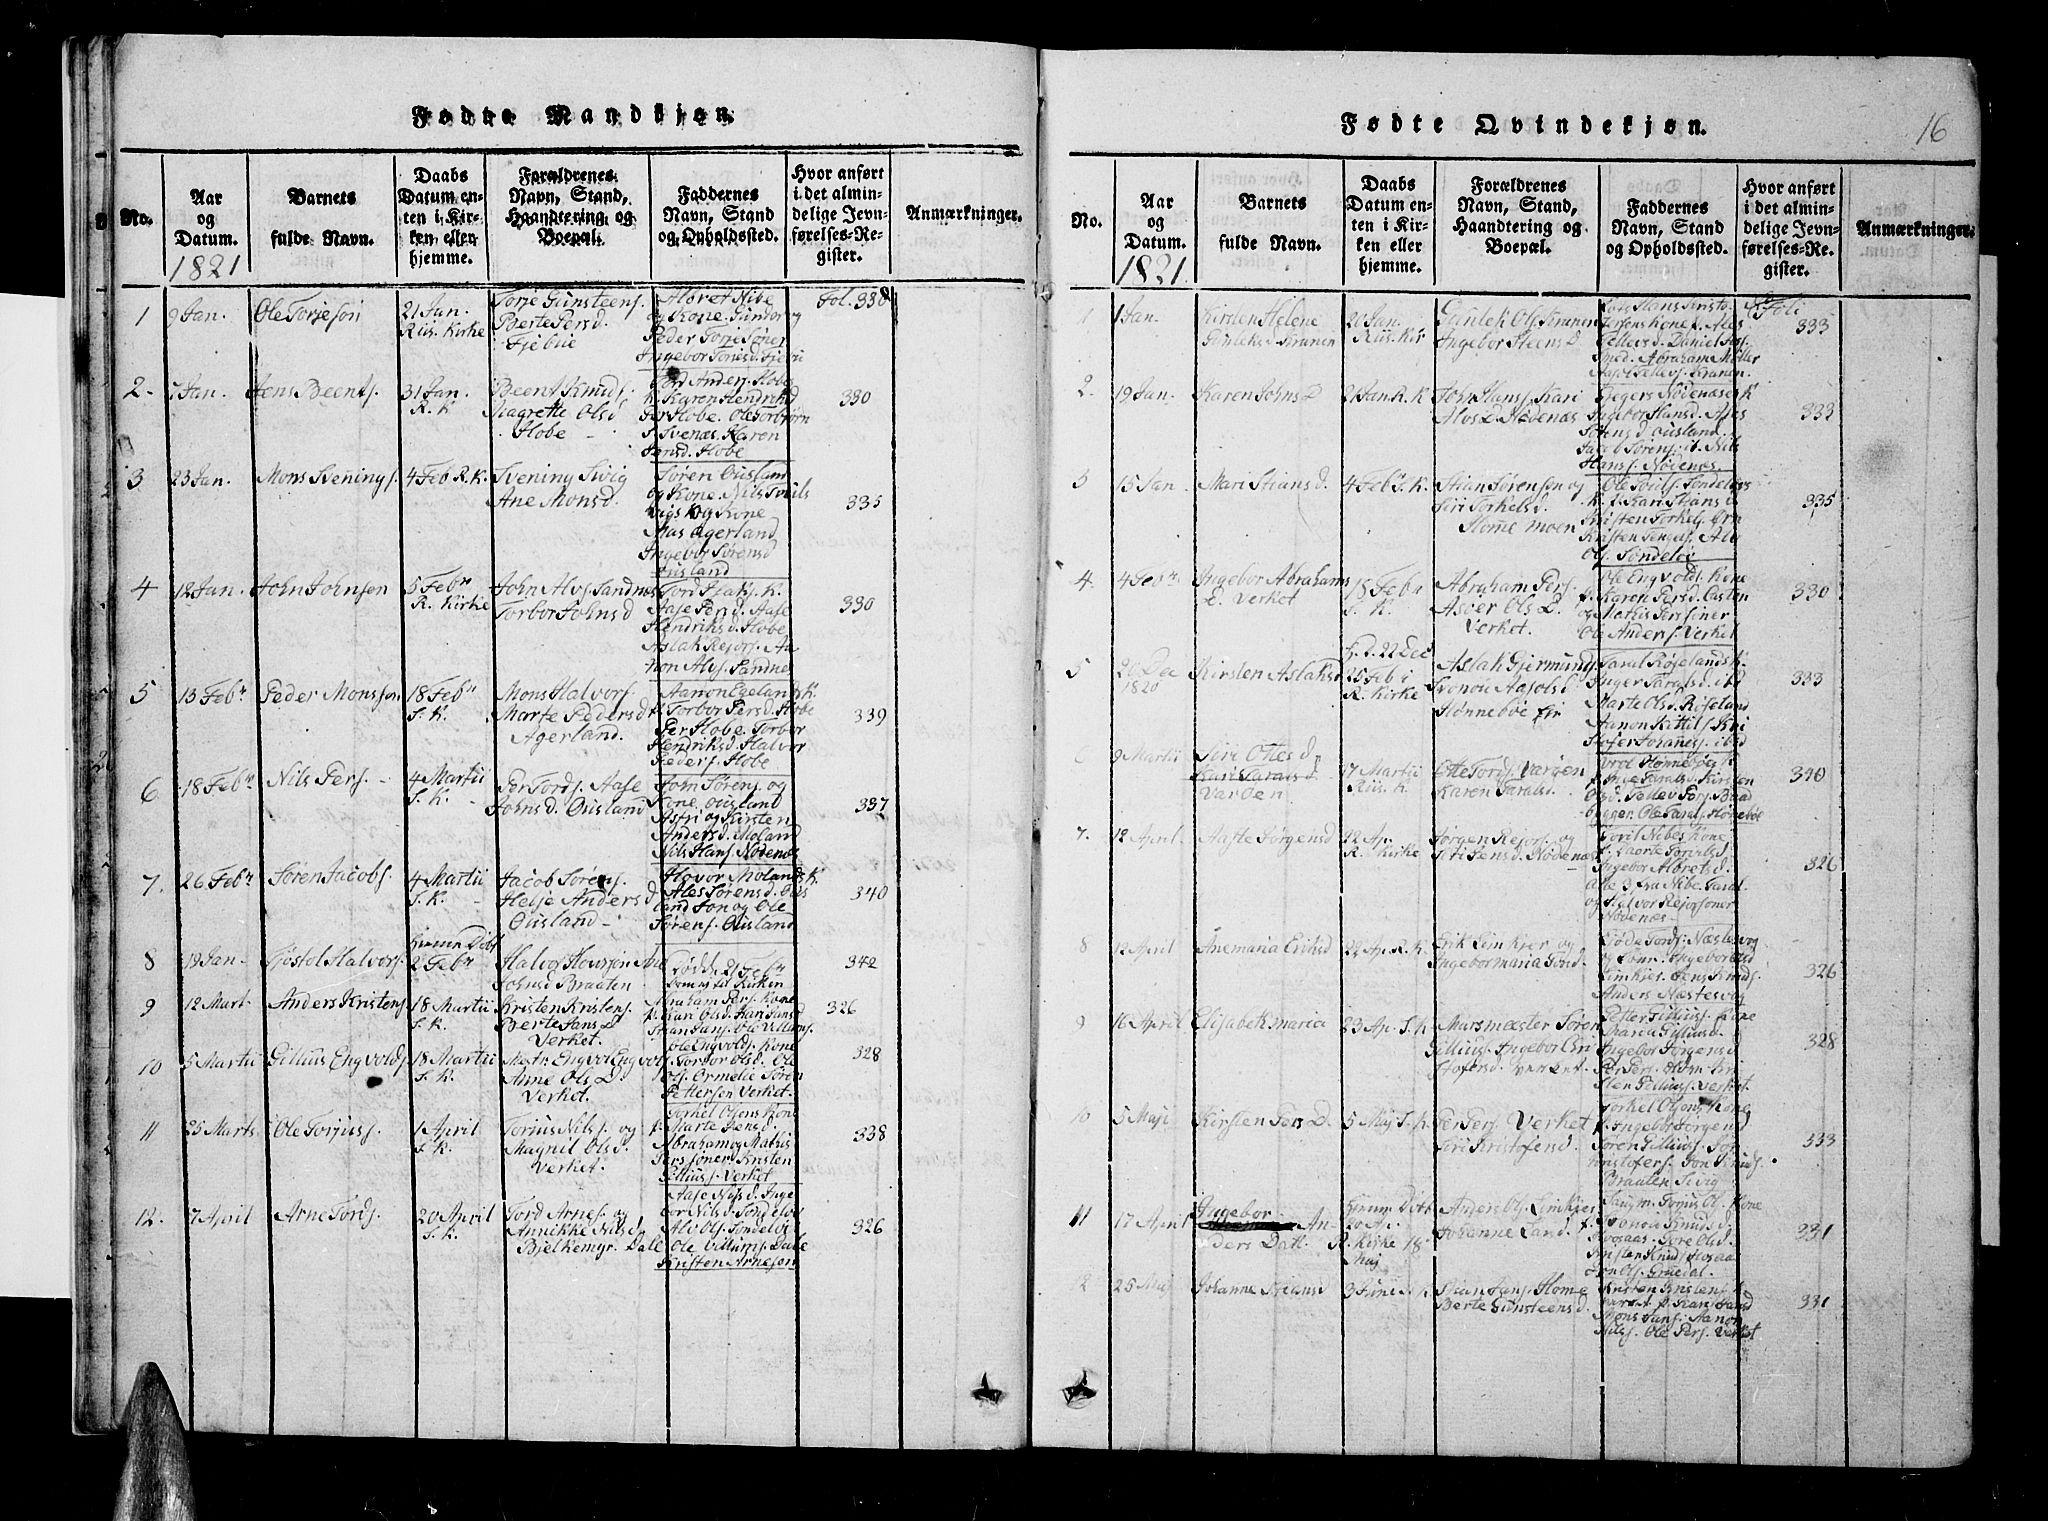 Fødte Mandkjøn.
No.
Aar
og
Datum.
1821
Barnets
fulde Navn.
Daabs
Datum en-
ten i Kir-
ken eller
hjemme.
Forældrenes
Navn, Stand,
Haandtering og
Boepæl.
Faddernes
Navn, Stand
og Opholdssted.
Hvor anført
i det almin-
delige Jevn-
førelses-Re-
gister.
Anmærkninger.
1
9 Jan.
Ole Torjesøn
21 Jan.
Riis. Kirke
Torje Gunsteens.
Berte Persd.
Fjebue
Albret Nibe
og Kone. Gunbor og
Peder Torjesøner
Fol. 338
2.
7 Jan.
Jens Beents.
31 Jan.
R. K
Beent Knuds.
Margrette Olsd
Hobe
Tord Anders. Hobe
K. Karen Hendriksd
Per Hobe. Ole Torbjørn
s. Svenæs. Karen
Jensd. Hobe
330
3
23 Jan.
Mons Svenings.
4 Feb R. K.
Svening Sivig
Ane Monsd.
Søren Ousland
og Kone. Nils
vigs og Kone
Aas Agerland
Ingebor Sørensd
Ousland
335
4
12 Jan.
John Johnsen
5 Febr
R. Kirke
John Alvs. Sandnæs
Torbor Johnsd
Tord K.
Aase Persd. Aase
Hendriksd. Hobe
Aslak Rejors. Aa-
non Alvs. Sandnæs
330
5
13 Febr
Peder Monssøn
18 Febr
S. K.
Mons Halvors.
Marte Pedersd
Agerland.
Aanon Egelands K.
f. Torbor Persd. Hobe
Per Hobe. Torbor
Hendriksd. Halvor
Peders. Hobe
339
6
18 Febr
Nils Pers.
4 Martii
S. K.
Per Tords. Aase
Johnsd. Ousland
John Sørens. og
Kone Ousland
Astri og Kirsten
Andersd. Moland
Nils Hans. Nødenæs
337
7.
26 Febr
Søren Jacobs.
4 Martii
S. K.
Jacob Sørens.
Helje Andersd
Ousland
Halvor Molands K.
Ales Sørensd. Ous
land Jon og Ole
Sørens. Ousland
340
8
19 Jan
Tjøstol Halvors.
2 Febr
Halvor
Johnsd Braaten
Døde 21 Febr
342
9
12 Mart
Anders Kristens.
18 Martii
S. K.
Kristen Kristens.
Berte Jans D.
Verket.
Abraham Pers. Kone
f. Kari Olsd. Kari Jansd
Stian Jans. Ole Villums.
326
10
5 Martii
Gillius Engvolds.
18 Martii
S. K.
Mstr. Engvor Engvols.
Anne Ols D.
Verket.
Ole Engvolds. Kone
f. Torbor Olsd. Ole
Ols. Ormelie Søren
Pettersen Verket.
328
11
25 Marts
Ole Torjuss.
1 April
S. K.
Torjus Nils. og
Magnil Olsd.
Verket.
Torkel Olsens Kone
f. Marte Jensd.
Abraham og Mathis
Perssøner. Kristen
Gilliuss. Verket
338
12.
7 April
Arne Tords.
20 April
S. K.
Tord Arnes. og
Annikke Nilsd
Bjelkemyr. Dale
Aase Nilsd. Inge
bor Nilsd. Søndelev
Alv Ols. Søndelev
Ole Villums. Dale
Kristen Arnesøn
326
Fødte Qvindekjøn.
16
No.
Aar
og
Datum.
1821.
Barnets
fulde Navn.
Daabs
Datum en-
ten i Kir-
ken eller
hjemme.
Forældrenes
Navn, Stand,
Haandtering og
Boepæl.
Faddernes
Navn, Stand
og Opholdssted.
Hvor anført
i det almin-
delige Jevn-
førelses-Re-
gister.
Anmærkninger.
1
1 Jan.
Kirsten Helene
Gunleksd Kranen
20 Jan.
Riis. Kir
Gunlek Ols. Kranen
Ingebor Steens D
Tellevsd. Daniel
Smed. Abraham Møller
Aasol Tellevs. Kranen.
Foli
333
2.
19 Jan.
Karen Johns D
21 Jan R. K
John Hans. Kari
Alvs D. Nødenæs
Rejers Nødenæs K
Ingebor Hansd. Ales
Sørensd Ousland.
Jacob Sørens. ib. Nils
Hans. Nødenæs.
333
3
15 Jan
Mari Stiansd.
4 Feb S. K.
Stian Sørensøn og
Siri Torkelsd.
Home moen
Ole Søndeløv
K. f. Kari Stians d
Kristen Torkels.
Kristen Alv
Ols. Søndeløv
335
4.
4 Febr.
Ingebor Abrahams
D. Verket
18 Febr
S. K.
Abraham Pers.
Asber Ols D.
Verket.
Ole Engvolds. Kone
f. Karen Persd. Casten
og Mathis Perssøner
Ole Anders. Verket
330
5
20 Dec
1820
Kirsten Aslaksd
H. D. 22 Dec
25 Feb i
R. Kirke
Aslak Gjermunds.
Svonou Aasolsd.
Hønnebøe
Taral Røselands K.
Inger Taralsd. ibd
Marte Olsd. Røseland
Aanon Kittils. Kri
stofer Johannes. ibd
333
9 Martii
Siri Ottesd
Kari Taralsd
Varden
17 Martii
Riis. K
Otte Tords. Varden
Karen Taralsd.
f. Inge Taralsd. Kirsten
Olsd. Tellev
bygger. Ole Tarals. Hønebøe
340
7.
12 April.
Aaste Jørgensd
22 Ap.
R. Kirke
Jørgen Rejers. og
Siri Jensd. Nødenæs
Toril Nibes Kone
f. Taralsd.
Ingebor Albretsd.
Alle 3 fra Nibe. Taral
og Halvor Rejorsøner
Nødenæs
326
8
12 April
Anemaria Eriksd
24 Ap. R. K
Erik Limkjer og
Ingebor maria Tord.
Tords. Næstesvog
og Kone. Ingebor
Limkjer. Jens Knuds.
Anders Næstesvog
326
9
16 April
Elisabeth maria
23 Ap. S. K
Marsmester Søren
Gillius. Ingebor Cri
stofersd. Verket.
Petter Gillius. Kone
Maria Gilliusd.
Ingebor Jørgensd
Per Pers. Holm Kri
sten Gillius. Verket.
328
10
5 Maji
Kirsten Pers D.
5 Maj S. K
Per Pers. Verket
Siri Kristofersd.
Torkel Olsens Kone
f. Ingebor Jørgensd
Søren Gillius.
Kristofers. Jon Knuds.
Braaten Sivig
333
11
17 April
Ingebor
An
ders Datt.
20 Ap.
R. Kirke 18
Maj
Anders Ols. Limkjer
Johanne Land
Torjus Ols. Kone
f. Svonou Knudsd
Mosaas. Tore Olsd.
Kristen Knuds. Mosaas
Jon Ols. Gruedal.
331
12
25 Maj
Johanne Stiansd
3 Junii S. K
Stian Jans. Home
Berte Gunsteensd.
Kristen Kristens. K
Verket f. Kari Jansd
Mons Jans. Aanon
Nils. Ole Pers. Verket
331